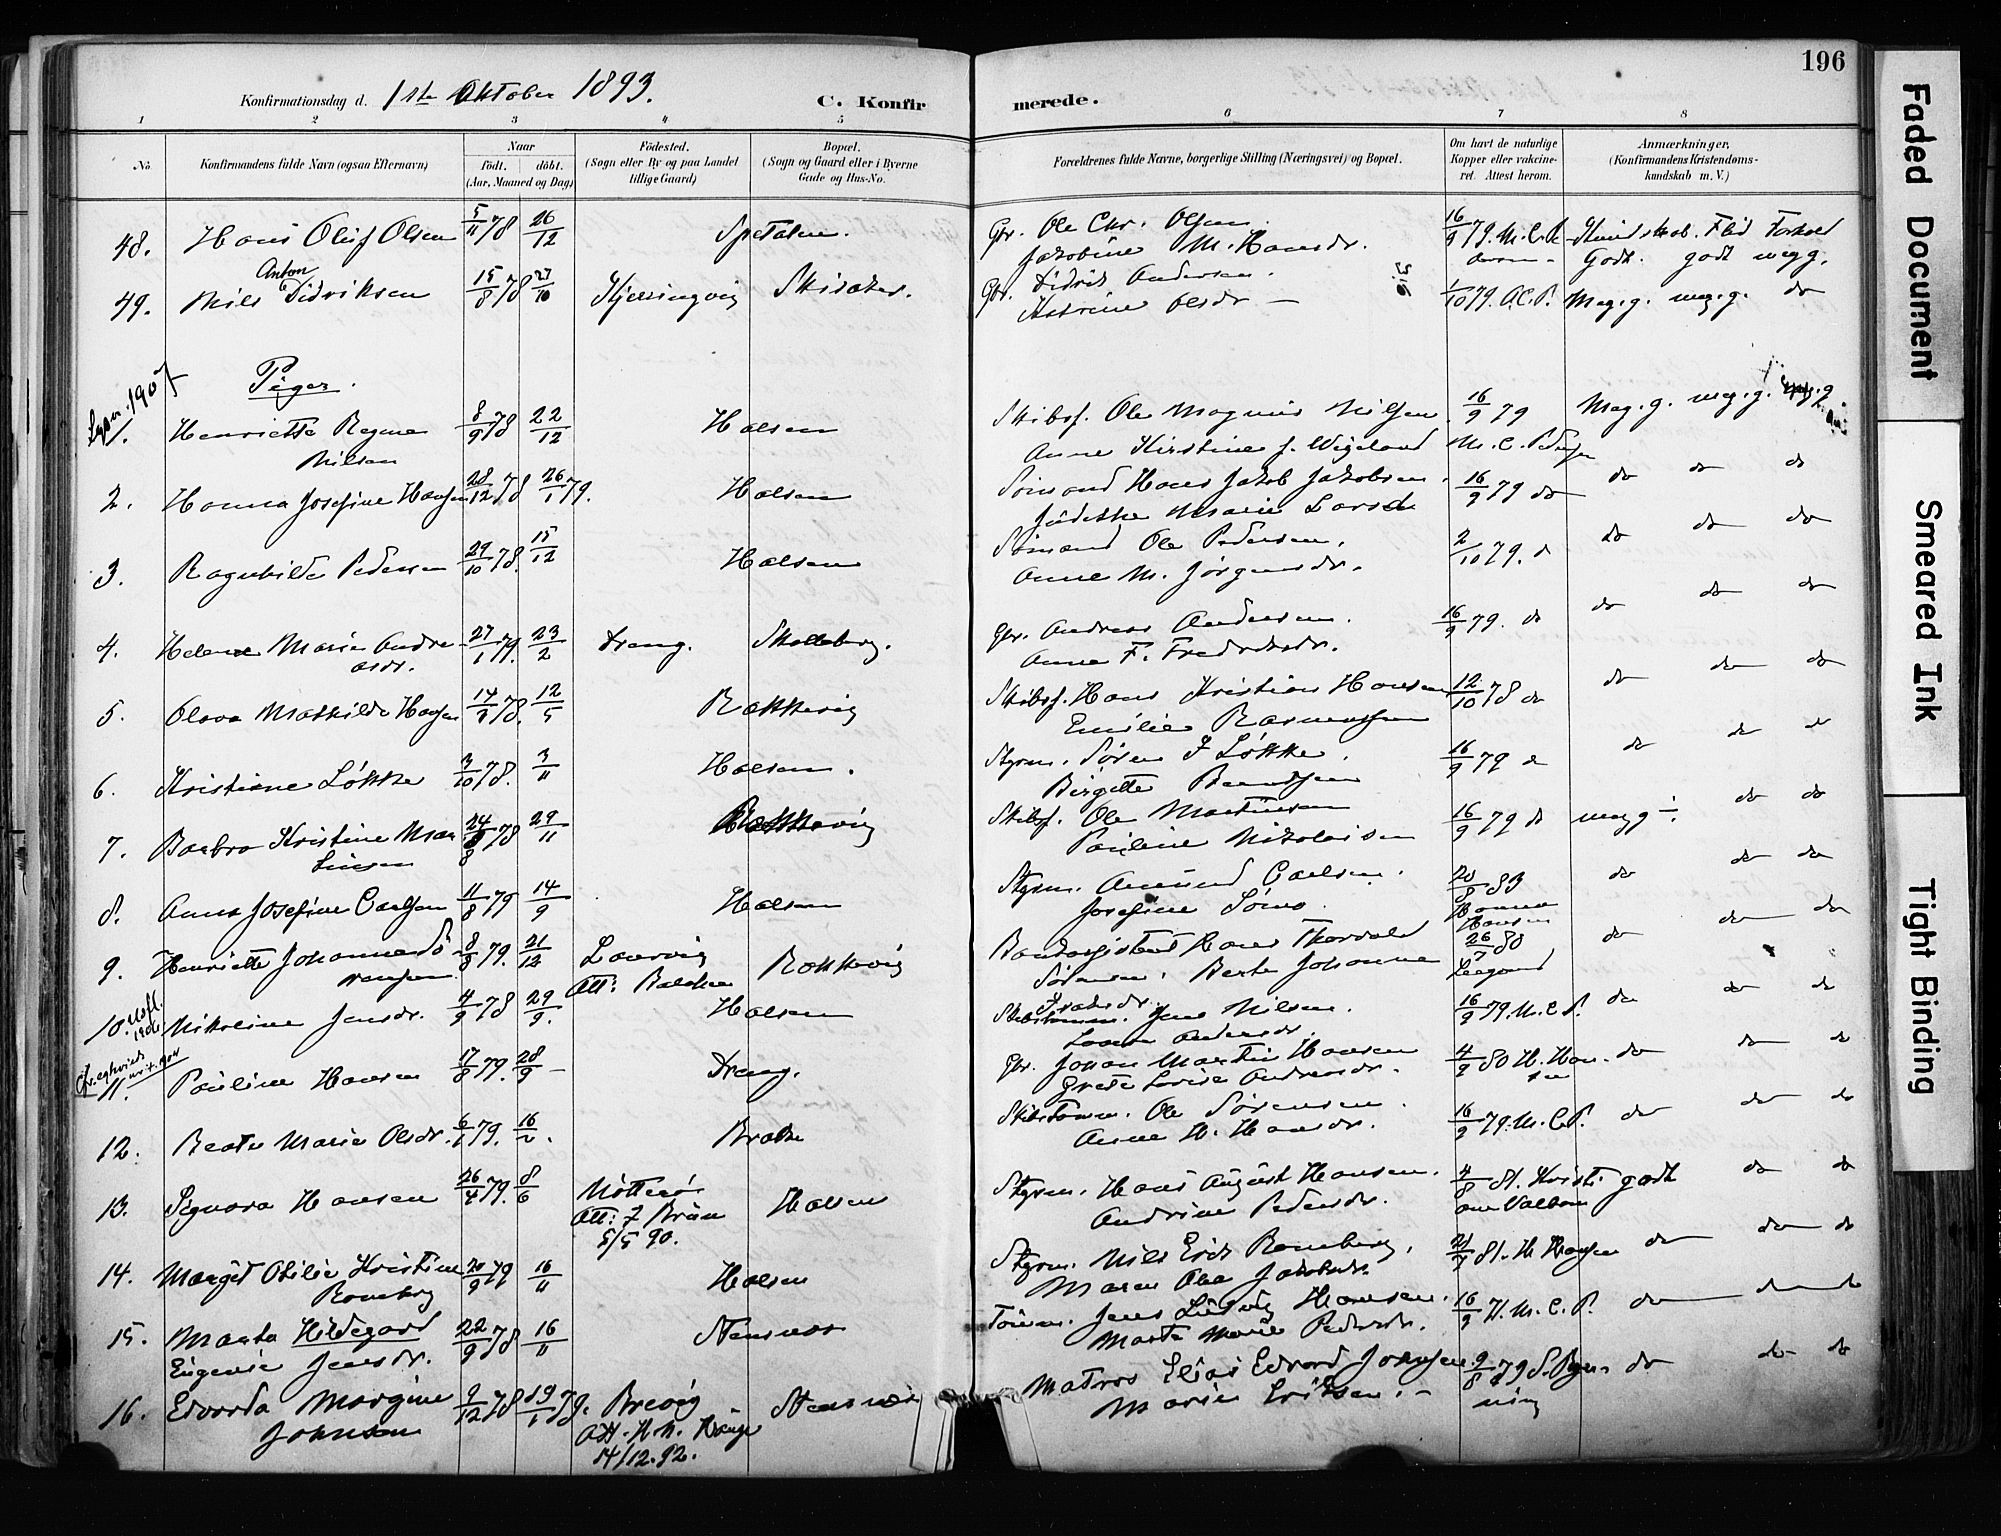 196
Konfirmationsdag d. 1ste Oktober 1893. C. Konfirmerede.
1 2 3 4 5 6 7 8
No. Konfirmandens fulde Navn (ogsaa Efternavn) Naar født. døbt. (Aar, Maaned og Dag) Fødested. (Sogn eller By og paa Landet tillige Gaard) Bopæl. (Sogn og Gaard eller i Byerne Gade og Hus-No. Forældrenes fulde Navne, borgerlige Stilling (Næringsvei) og Bopæl. Om havt de naturlige Kopper eller vakcineret. Attest herom. Anmærkninger, (Konfirmandens Kristendomskundskab m. V.)
48. Hans Oluf Olsen 5/11 78 26/12 Spetalen. Gbr. Ole Chr. Olsen 16/9 79. M.C.P. Kundskab. Flid Forhold
Jakobine M. Hansdr. Godt. godt meg g.
49. Nils Anton Didriksen 15/8 78 27/10 Kjerringvig Skisaker. Gbr. Didrik Andersen.
Katrine Olsdr - 1/10 79. A.C.P. Meg. g. meg. g. do
Piger.
1. Henriette Regine Nilsen 8/9 78 22/12 Holsen Skibsf. Ole Magnus Nilsen 16/9 79 Meg. g. meg. g. meg. g.
Anne Kirstine f. Wigeland M. C. Peders
2. Hanna Josefine Hansen 28/12 78 26/1 79. Holsen Sømand Hans Jakob Jakobsen. 16/9 79 do do do do
Marie Larsd
3. Ragnhilda Pedersen 29/10 78. 15/12 Holsen Sømand Ole Pedersen. 2/10 79. d do do do
Anne M. Jørgensdr.
4. Helene Marie Andreasdr. 27/1 79. 23/2 Træng. Skolleborg. Gbr. Andreas Andersen. 16/9 79. d do do do
Anne F. Fredriksdr.
5. Olava Mathilde Hansen 14/3 78. 12/5 Rokkevig Skibsf. Hans Kristian Hansen 12/10 78 do do do do
Emilie Rasmussen
6. Kristiane Løkke 3/10 78. 3/11 Holsen. Styrm. Søren J Løkke. 16/9 79 d do do d
Birgitte Berntsen
7. Barbro Kristine Martinsen 24/8 78 29/11 Rokkevig Skibsf. Ole Martinsen 16/9 79 d meg g ÷ do do
Pauline Nikolaisen
8. Anna Josefine Carlsen 11/8 79 14/9 Holsen Styrm. Amund Carlsen. 20/8 83 do do do
Josefine Hanna Hansen
9. Henriette Johanne Sørensen 8/8 79. 21/12 Laurvig Rokkevig Hans Thorvald 26/7 80 do do do
Att: Sørensen. Berte Johanne
10. Nikoline Jensdr. 4/9 78 29/9. Holsen Jens Nilsen. 16/9 79. M.C.P. do do do
11. Pauline Hansen 17/8 79. 28/9 - Træng. Gbr. Johan Martin Hansen 4/9 80 H. Hansen do do do
Grete Lovise Andreasdr.
12. Beate Marie Olsdr. 6/1 79. 16/2. Bratte Skibstømm. Ole Sørensen. 16/9 79. M.C.P. do do do
Anne H. Hansdr.
13. Signora Hansen 26/4 79. 8/6 Nøtterø Holsen Styrm. Hans August Hansen. 4/8 81. Kristi godt do do
Att: J Bruun 5/5 90. Andrine Pedersdr.
14. Margit Otilie Kristine Romborg 20/9 79 16/11 Holsen Styrm. Nils Erik Romberg. 21/7 81. H Hansen do do do
Maren Olea Jakobsdr.
15. Marta Hildegard Eugenie Jensdr. 22/9 78 16/11 Stensnes Tømm. Jens Ludvig Hansen. 16/9 M. C. P. do do do
Marte Marie Pedersdr.
16. Edvarda Margine Johnsen 9/12 78 19/1 79. Brevig Stensnes Matros Elias Edvard Johnsen. 9/8 79 do do do
14/12.92. Marie Eriksen. -
Faded Document
Smeared Ink
Tight Binding